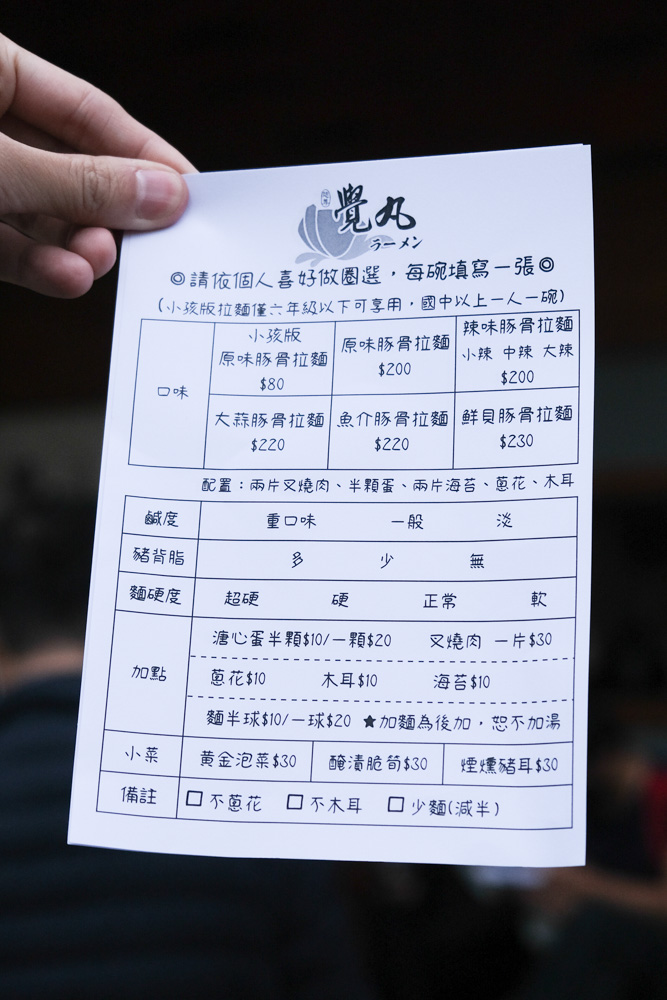 覺丸
ラーメン
◎請依個人喜好做圈選，每碗填寫一張◎
(小孩版拉麵僅六年級以下可享用，國中以上一人一碗)
口味
小孩版
原味豚骨拉麵
$80
原味豚骨拉麵
$200
辣味豚骨拉麵
小辣 中辣 大辣
$200
大蒜豚骨拉麵
$220
魚介豚骨拉麵
$220
鮮貝豚骨拉麵
$230
配置：兩片叉燒肉、半顆蛋、兩片海苔、蔥花、木耳
鹹度 重口味 一般 淡
豬背脂 多 少 無
麵硬度 超硬 硬 正常 軟
加點
溏心蛋半顆$10/一顆$20 叉燒肉 一片$30
蔥花$10 木耳$10 海苔$10
麵半球$10/一球$20 ★加麵為後加，恕不加湯
小菜 黄金泡菜$30 醃漬脆筍$30 煙燻豬耳$30
備註 □ 不蔥花 □ 不木耳 □ 少麵(減半)